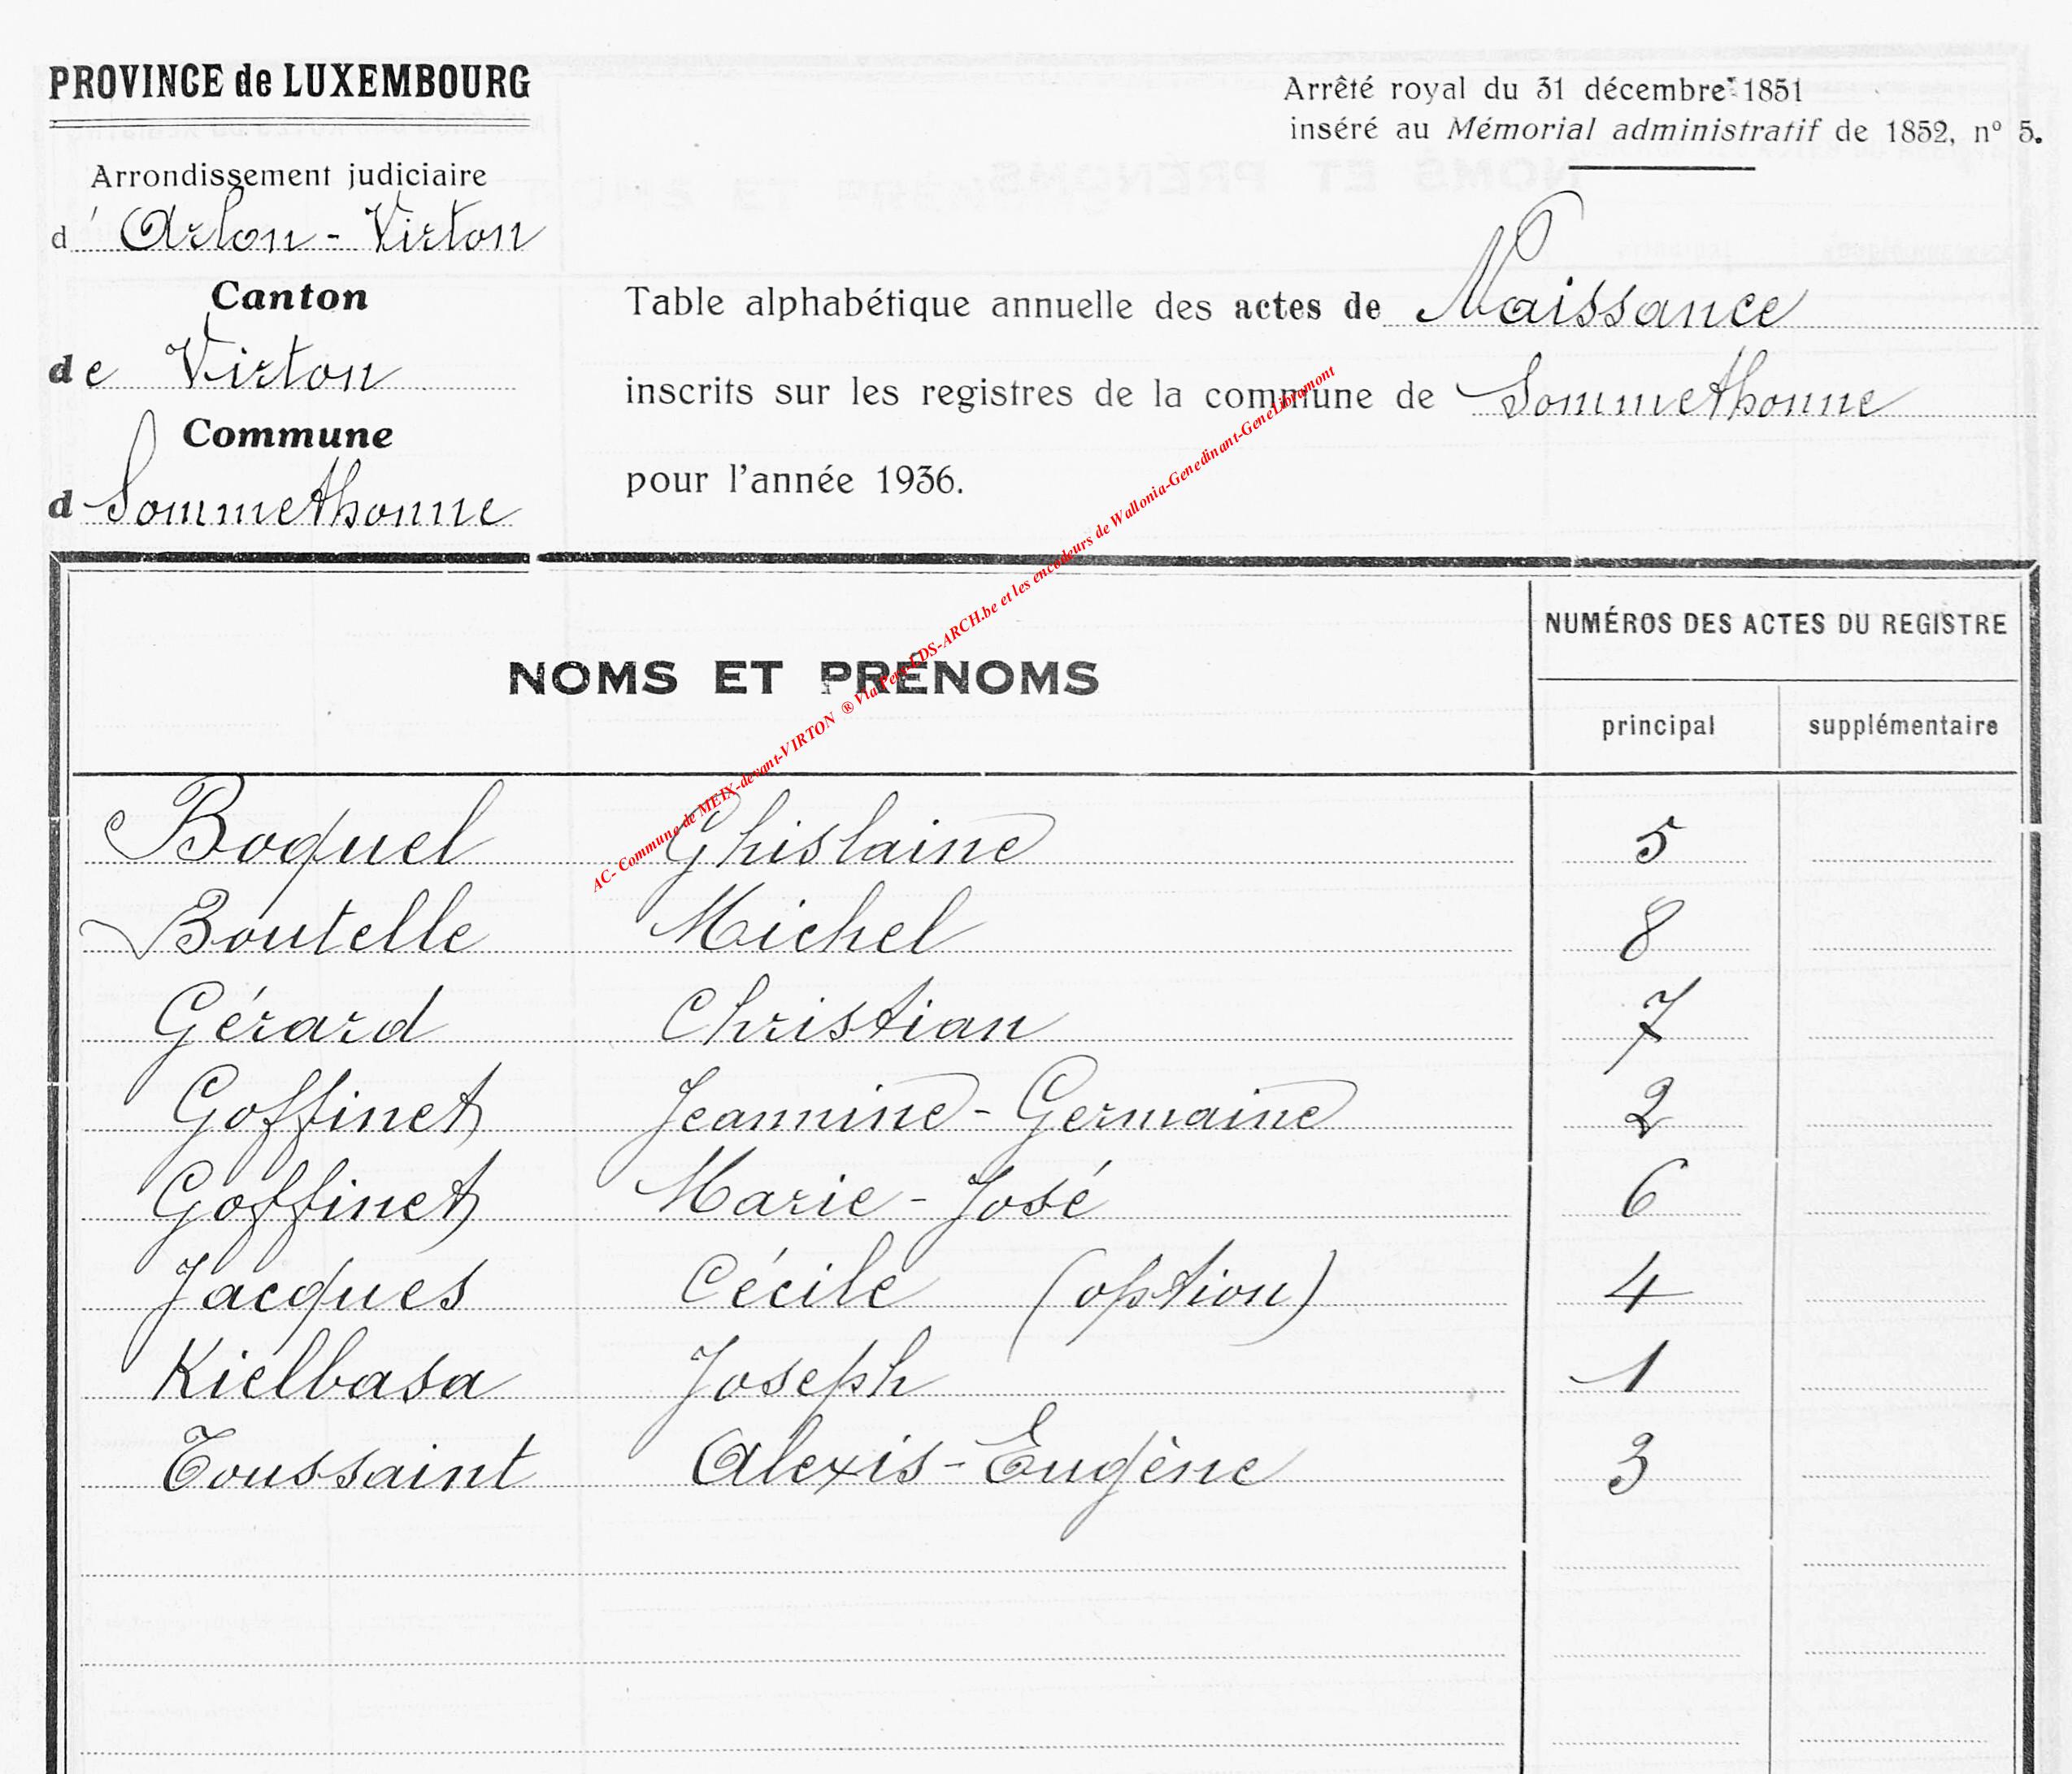 PROVINCE de LUXEMBOURG
Arrêté royal du 31 décembre 1851
inséré au Mémorial administratif de 1852, nº 5.
Arrondissement judiciaire
d'Arlon - Virton
Canton
de Virton
Commune
d Sommethonne
Table alphabétique annuelle des actes de Naissance
inscrits sur les registres de la commune de Sommethonne
pour l'année 1936.
NOMS ET PRÉNOMS
NUMÉROS DES ACTES DU REGISTRE
principal supplémentaire
Boquel Ghislaine 5
Boutelle Michel 8
Gérard Christian 7
Goffinet Jeannine - Germaine 2
Goffinet Marie - José 6
Jacques Cécile (option) 4
Kielbasa Joseph 1
Toussaint Alexis - Eugène 3
AC- Commune de MEIX-devant-VIRTON ® Via Pers-CDS-ARCH.be et les encodeurs de Wallonia-Genedinant-GeneLibramont